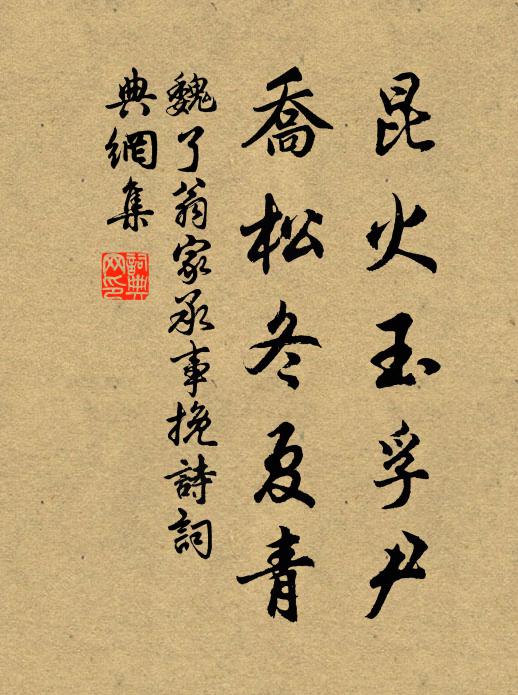 昆火玉孚尹
喬松冬夏青
魏了翁家承事挽詩詞
典網集
詞典網印